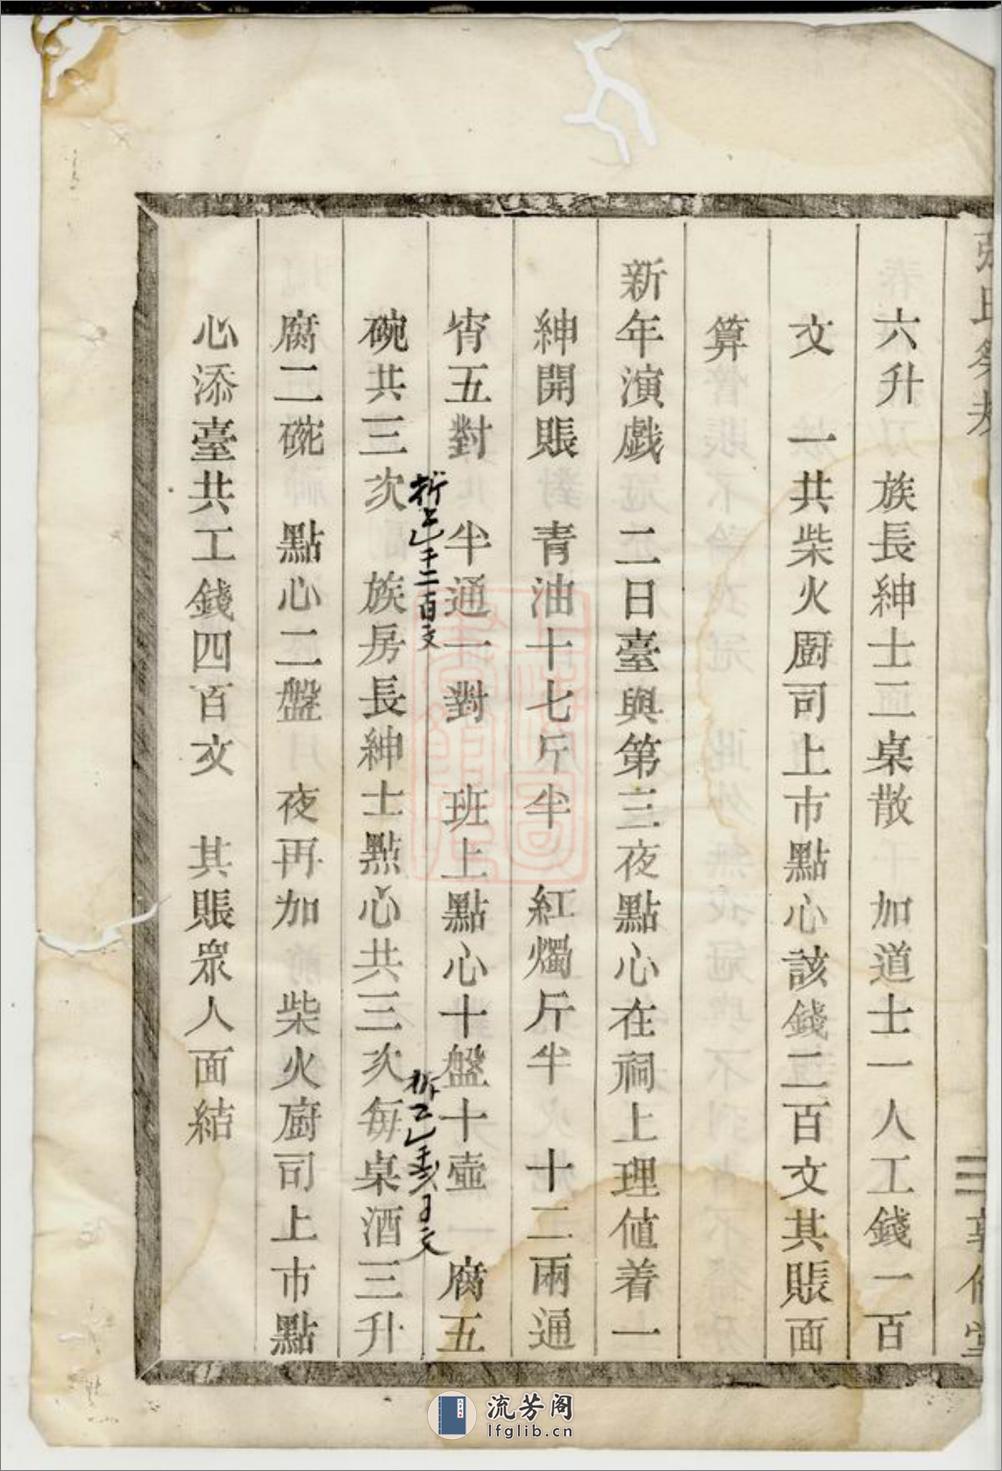 六升　族長紳士二桌散　加道士一人工錢一百
文　一共柴火厨司上市點心該錢二百文其賬面
算
新年演戯　二日臺與第三夜點心在祠上理值着一
紳開賬　青油十七斤半　紅燭斤半　十二兩通
宵五對　半通一對　班上點心十盤十壺　腐五
碗共三次　族房長紳士點心共三次每桌酒三升
腐二碗　點心二盤　夜再加　柴火厨司上市點
心添臺共工錢四百文　其賬眾人面結
二百文
文
三
流芳阁
lfglib.cn